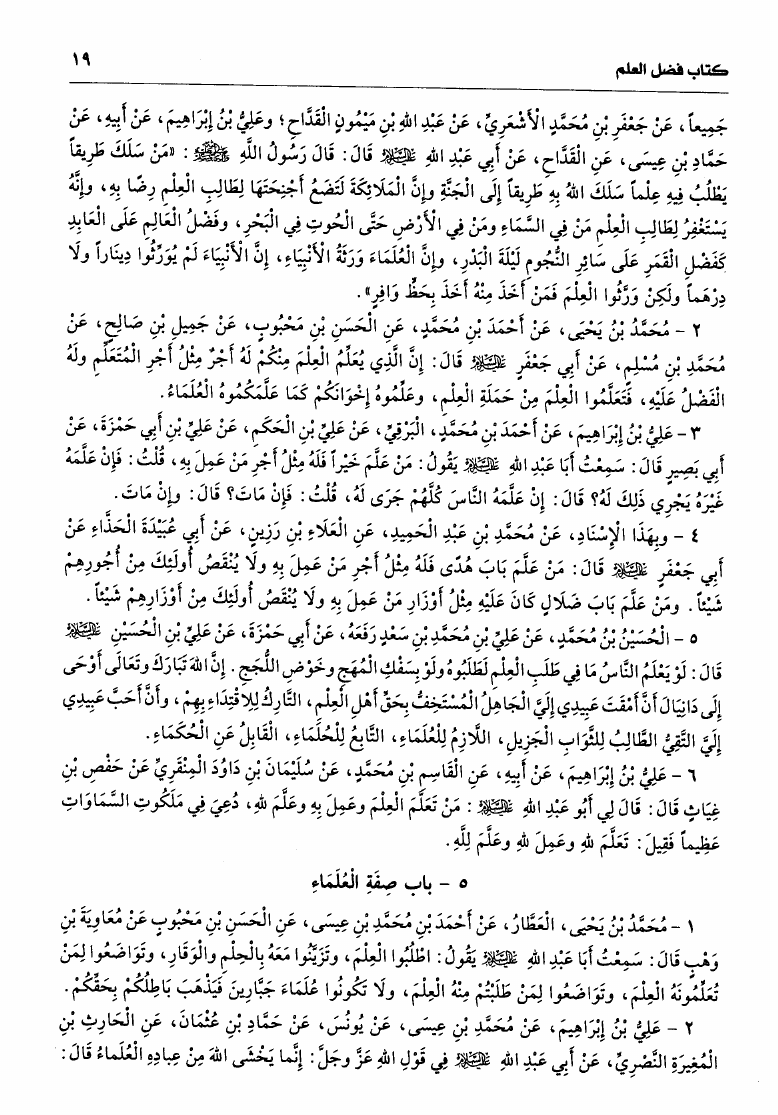 ١٩
كتاب فضل العلم
جَمِيعاً، عَنْ جَعْفَرِ بْنِ مُحَمَّدٍ الْأَشْعَرِيِّ، عَنْ عَبْدِ اللهِ بْنِ مَيْمُونٍ الْقَدَّاحِ؛ وعَلِيُّ بْنُ إِبْرَاهِيمَ، عَنْ أَبِيهِ، عَنْ
حَمَّادِ بْنِ عِيسَى، عَنِ الْقَدَّاحِ، عَنْ أَبِي عَبْدِ اللهِ عَلَيْهِ السَّلَامُ قَالَ: قَالَ رَسُولُ اللَّهِ ﷺ: «مَنْ سَلَكَ طَرِيقاً
يَطْلُبُ فِيهِ عِلْماً سَلَكَ اللهُ بِهِ طَرِيقاً إِلَى الْجَنَّةِ وإِنَّ الْمَلَائِكَةَ لَتَضَعُ أَجْنِحَتَهَا لِطَالِبِ الْعِلْمِ رِضًا بِهِ، وإِنَّهُ
يَسْتَغْفِرُ لِطَالِبِ الْعِلْمِ مَنْ فِي السَّمَاءِ ومَنْ فِي الْأَرْضِ حَتَّى الْحُوتِ فِي الْبَحْرِ، وفَضْلُ الْعَالِمِ عَلَى الْعَابِدِ
كَفَضْلِ الْقَمَرِ عَلَى سَائِرِ النُّجُومِ لَيْلَةَ الْبَدْرِ، وإِنَّ الْعُلَمَاءَ وَرَثَةُ الْأَنْبِيَاءِ، إِنَّ الْأَنْبِيَاءَ لَمْ يُوَرِّثُوا دِينَاراً ولَا
دِرْهَماً ولَكِنْ وَرَّثُوا الْعِلْمَ فَمَنْ أَخَذَ مِنْهُ أَخَذَ بِحَظٍّ وَافِرٍ».
٢ - مُحَمَّدُ بْنُ يَحْيَى، عَنْ أَحْمَدَ بْنِ مُحَمَّدٍ، عَنِ الْحَسَنِ بْنِ مَحْبُوبٍ، عَنْ جَمِيلِ بْنِ صَالِحٍ، عَنْ
مُحَمَّدِ بْنِ مُسْلِمٍ، عَنْ أَبِي جَعْفَرٍ عَلَيْهِ السَّلَامُ قَالَ: إِنَّ الَّذِي يُعَلِّمُ الْعِلْمَ مِنْكُمْ لَهُ أَجْرٌ مِثْلُ أَجْرِ الْمُتَعَلِّمِ ولَهُ
الْفَضْلُ عَلَيْهِ، فَتَعَلَّمُوا الْعِلْمَ مِنْ حَمَلَةِ الْعِلْمِ، وعَلِّمُوهُ إِخْوَانَكُمْ كَمَا عَلَّمَكُمُوهُ الْعُلَمَاءُ.
٣ - عَلِيُّ بْنُ إِبْرَاهِيمَ، عَنْ أَحْمَدَ بْنِ مُحَمَّدٍ، الْبَرْقِيِّ، عَنْ عَلِيِّ بْنِ الْحَكَمِ، عَنْ عَلِيِّ بْنِ أَبِي حَمْزَةَ، عَنْ
أَبِي بَصِيرٍ قَالَ: سَمِعْتُ أَبَا عَبْدِ اللهِ عَلَيْهِ السَّلَامُ يَقُولُ: مَنْ عَلَّمَ خَيْراً فَلَهُ مِثْلُ أَجْرِ مَنْ عَمِلَ بِهِ، قُلْتُ: فَإِنْ عَلَّمَهُ
غَيْرَهُ يَجْرِي ذَلِكَ لَهُ؟ قَالَ: إِنْ عَلَّمَهُ النَّاسَ كُلَّهُمْ جَرَى لَهُ، قُلْتُ: فَإِنْ مَاتَ؟ قَالَ: وإِنْ مَاتَ.
٤ - وبِهَذَا الْإِسْنَادِ، عَنْ مُحَمَّدِ بْنِ عَبْدِ الْحَمِيدِ، عَنِ الْعَلَاءِ بْنِ رَزِينٍ، عَنْ أَبِي عُبَيْدَةَ الْحَذَّاءِ عَنْ
أَبِي جَعْفَرٍ عَلَيْهِ السَّلَامُ قَالَ: مَنْ عَلَّمَ بَابَ هُدًى فَلَهُ مِثْلُ أَجْرِ مَنْ عَمِلَ بِهِ ولَا يُنْقَصُ أُولَئِكَ مِنْ أُجُورِهِمْ
شَيْئاً. ومَنْ عَلَّمَ بَابَ ضَلَالٍ كَانَ عَلَيْهِ مِثْلُ أَوْزَارِ مَنْ عَمِلَ بِهِ ولَا يُنْقَصُ أُولَئِكَ مِنْ أَوْزَارِهِمْ شَيْئاً.
٥ - الْحُسَيْنُ بْنُ مُحَمَّدٍ، عَنْ عَلِيِّ بْنِ مُحَمَّدِ بْنِ سَعْدٍ رَفَعَهُ، عَنْ أَبِي حَمْزَةَ، عَنْ عَلِيِّ بْنِ الْحُسَيْنِ عَلَيْهِ السَّلَامُ
قَالَ: لَوْ يَعْلَمُ النَّاسُ مَا فِي طَلَبِ الْعِلْمِ لَطَلَبُوهُ ولَوْ بِسَفْكِ الْمُهَجِ وخَوْضِ اللُّجَجِ. إِنَّ اللهَ تَبَارَكَ وتَعَالَى أَوْحَى
إِلَى دَانِيَالَ أَنَّ أَمْقَتَ عَبِيدِي إِلَيَّ الْجَاهِلُ الْمُسْتَخِفُّ بِحَقِّ أَهْلِ الْعِلْمِ، التَّارِكُ لِلِاقْتِدَاءِ بِهِمْ، وأَنَّ أَحَبَّ عَبِيدِي
إِلَيَّ التَّقِيُّ الطَّالِبُ لِلثَّوَابِ الْجَزِيلِ، اللَّازِمُ لِلْعُلَمَاءِ، التَّابِعُ لِلْحُلَمَاءِ، الْقَابِلُ عَنِ الْحُكَمَاءِ.
٦ - عَلِيُّ بْنُ إِبْرَاهِيمَ، عَنْ أَبِيهِ، عَنِ الْقَاسِمِ بْنِ مُحَمَّدٍ، عَنْ سُلَيْمَانَ بْنِ دَاوُدَ الْمِنْقَرِيِّ عَنْ حَفْصِ بْنِ
غِيَاثٍ قَالَ: قَالَ لِي أَبُو عَبْدِ اللهِ عَلَيْهِ السَّلَامُ: مَنْ تَعَلَّمَ الْعِلْمَ وعَمِلَ بِهِ وعَلَّمَ للهِ، دُعِيَ فِي مَلَكُوتِ السَّمَاوَاتِ
عَظِيماً فَقِيلَ: تَعَلَّمَ للهِ وعَمِلَ للهِ وعَلَّمَ لِلَّهِ.
٥ - باب صِفَةِ الْعُلَمَاءِ
١ - مُحَمَّدُ بْنُ يَحْيَى، الْعَطَّارُ، عَنْ أَحْمَدَ بْنِ مُحَمَّدِ بْنِ عِيسَى، عَنِ الْحَسَنِ بْنِ مَحْبُوبٍ عَنْ مُعَاوِيَةَ بْنِ
وَهْبٍ قَالَ: سَمِعْتُ أَبَا عَبْدِ اللهِ عَلَيْهِ السَّلَامُ يَقُولُ: اطْلُبُوا الْعِلْمَ، وتَزَيَّنُوا مَعَهُ بِالْحِلْمِ والْوَقَارِ، وتَوَاضَعُوا لِمَنْ
تُعَلِّمُونَهُ الْعِلْمَ، وتَوَاضَعُوا لِمَنْ طَلَبْتُمْ مِنْهُ الْعِلْمَ، ولَا تَكُونُوا عُلَمَاءَ جَبَّارِينَ فَيَذْهَبَ بَاطِلُكُمْ بِحَقِّكُمْ.
٢ - عَلِيُّ بْنُ إِبْرَاهِيمَ، عَنْ مُحَمَّدِ بْنِ عِيسَى، عَنْ يُونُسَ، عَنْ حَمَّادِ بْنِ عُثْمَانَ، عَنِ الْحَارِثِ بْنِ
الْمُغِيرَةِ النَّصْرِيِّ، عَنْ أَبِي عَبْدِ اللهِ عَلَيْهِ السَّلَامُ فِي قَوْلِ اللهِ عَزَّ وجَلَّ: إِنَّما يَخْشَى اللهَ مِنْ عِبادِهِ الْعُلَماءُ قَالَ: